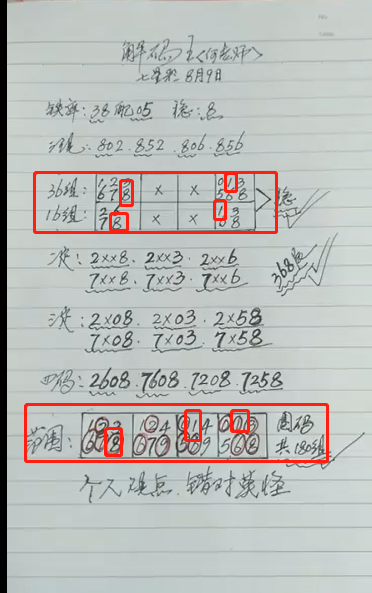 解码王〈何老师〉
七星彩 8月9日
铁率:38配05 稳:8
汪是:802.852.806.856
36组: 123 678 × × 013 568 稳
16组: 2 78 × × 1 3 8
二定:2××8.2××3.2××6 368
7××8.7××3.7××6
三定:2×08.2×03.2×58
7×08.7×03.7×58
四码:2608.7608.7208.7258
范围: 123 678 124 679 014 569 013 568 圈码 共180组
个人观点.错对莫怪